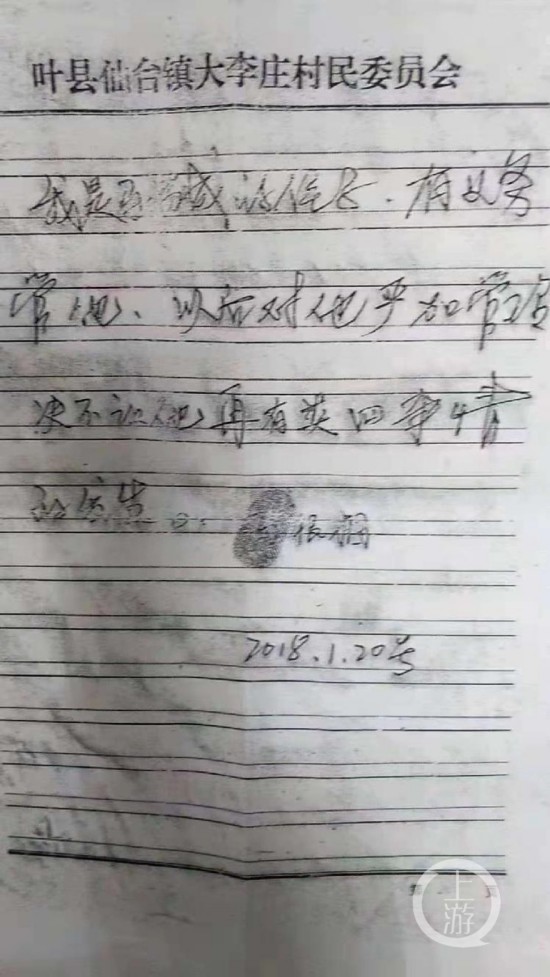 叶县仙台镇大李庄村民委员会
我是 诚的伯父、有义务
管他、以后对他严加管治
决不让他再有类似事情
的发生。
2018.1.20号
第 页
上游